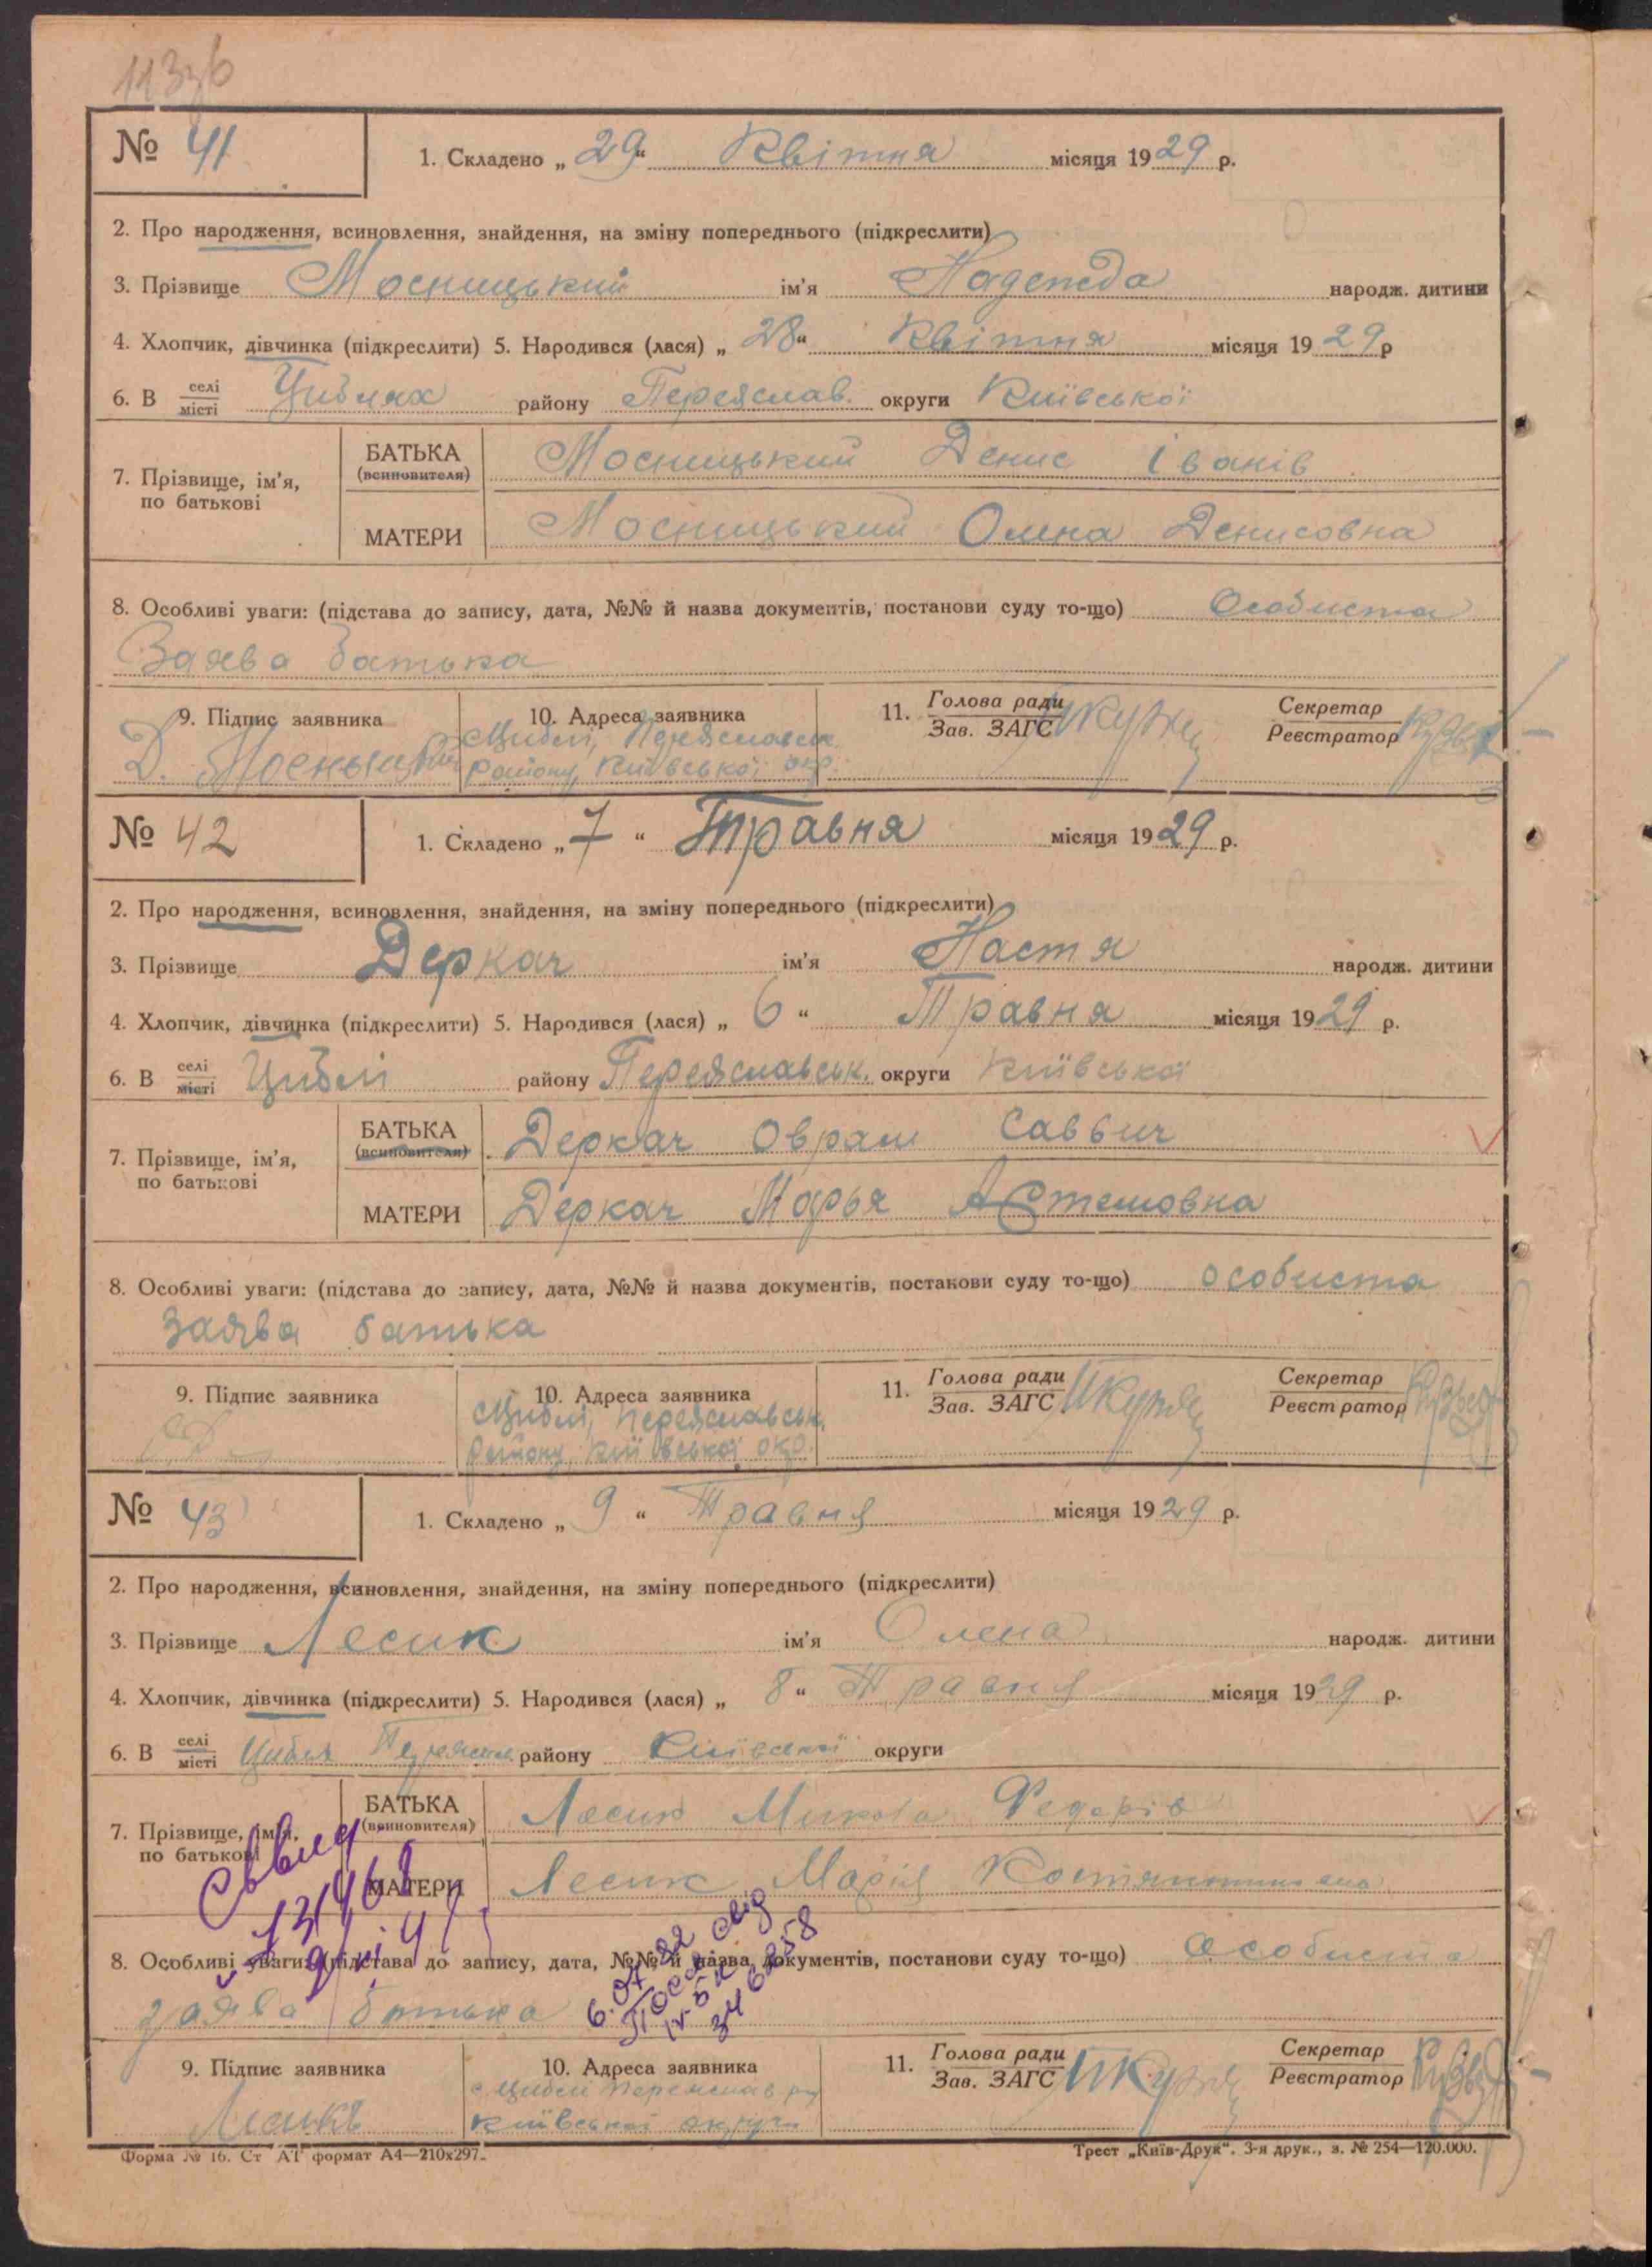 № 41
1. Складено „ 29 “ Квітня місяця 1929 р.
2. Про народження, всиновлення, знайдення, на зміну попереднього (підкреслити)
3. Прізвище Мосницький ім'я Надежда народж. дитини
4. Хлопчик, дівчинка (підкреслити) 5. Народився (лася) „ 28 “ Квітня місяця 1929 р
6. В селі/місті Циблях району Переяслав. округи Київської
7. Прізвище, ім'я, по батькові
БАТЬКА (всиновителя) Мосницький Денис Іванів
МАТЕРИ Мосницький Олена Денисовна
8. Особливі уваги: (підстава до запису, дата, №№ й назва документів, постанови суду то-що) Особиста
Заява батька
9. Підпис заявника 10. Адреса заявника 11. Голова ради/Зав. ЗАГС Секретар/Реєстратор
Д. Мосныцкий с. Циблі, Переяславськ.
району, Київської окр.
№ 42
1. Складено „ 7 “ Травня місяця 1929 р.
2. Про народження, всиновлення, знайдення, на зміну попереднього (підкреслити)
3. Прізвище Деркач ім'я Настя народж. дитини
4. Хлопчик, дівчинка (підкреслити) 5. Народився (лася) „ 6 “ Травня місяця 1929 р.
6. В селі/місті Циблі району Переяславськ. округи Київської
7. Прізвище, ім'я, по батькові
БАТЬКА (всиновителя) Деркач Оврам Саввич
МАТЕРИ Деркач Марья Артемовна
8. Особливі уваги: (підстава до запису, дата, №№ й назва документів, постанови суду то-що) особиста
Заява батька
9. Підпис заявника 10. Адреса заявника 11. Голова ради/Зав. ЗАГС Секретар/Реєстратор
с. Циблі, Переяславськ.
району, Київської окр.
№ 43
1. Складено „ 9 “ Травня місяця 1929 р.
2. Про народження, всиновлення, знайдення, на зміну попереднього (підкреслити)
3. Прізвище Лесик ім'я Олена народж. дитини
4. Хлопчик, дівчинка (підкреслити) 5. Народився (лася) „ 8 “ Травня місяця 1929 р.
6. В селі/місті Циблі району Київської округи
7. Прізвище, ім'я, по батькові
БАТЬКА (всиновителя) Лесик Микола Федорів
МАТЕРИ Лесик Марія
8. Особливі уваги: (підстава до запису, дата, №№ й назва документів, постанови суду то-що) Особиста
заява батька
9. Підпис заявника 10. Адреса заявника 11. Голова ради/Зав. ЗАГС Секретар/Реєстратор
с. Циблі Переяслав
Київської округи
Форма № 16. Ст АТ формат А4—210х297.
Трест „Київ-Друк“. 3-я друк., з. № 254—120.000.